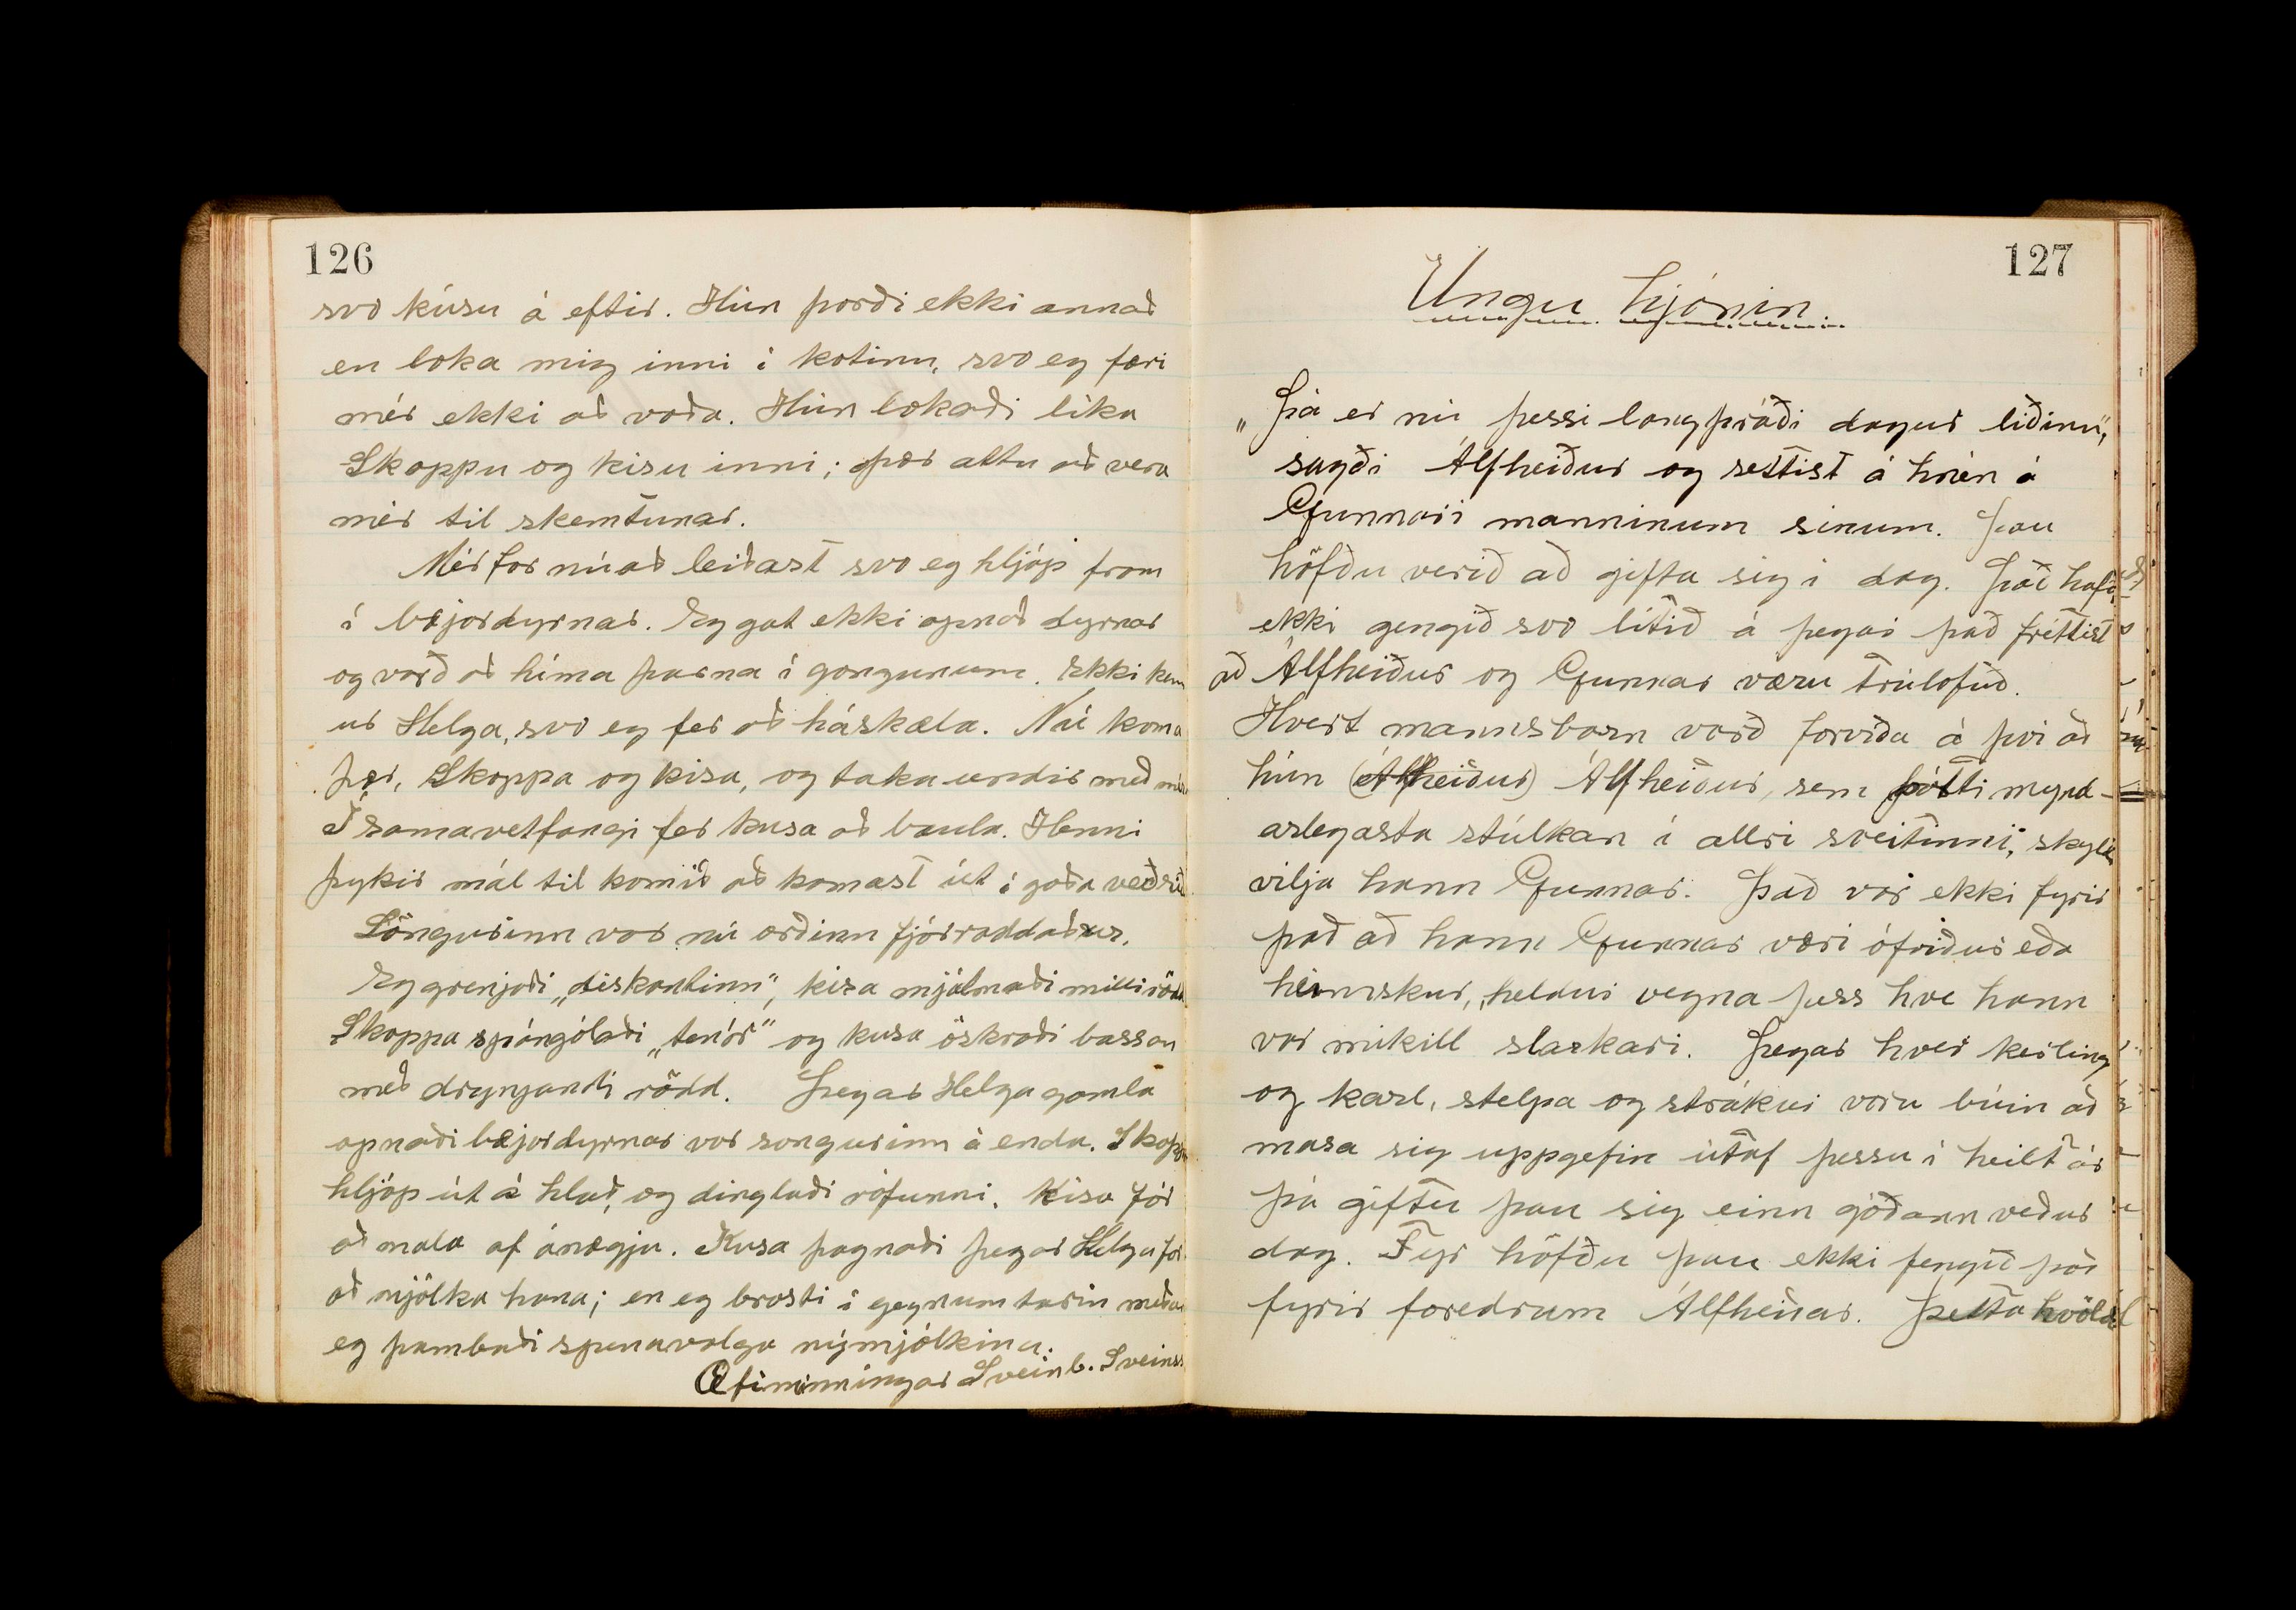 126
svo kúsu á eftir. Hún þorði ekki annað
en loka mig inni í kotinu, svo eg færi
mér ekki að voða. Hún lokaði líka
Skoppu og kisu inni; þær áttu að vera
mér til skemtunar.
Mér for nú að leiðast svo eg hljóp fram
í bæjardyrnar. Eg gat ekki opnað dyrnar
og varð að híma þarna í gongunum. Ekki kem
ur Helga, svo eg fer að háskæla. Nú koma
þær, Skoppa og kisa, og taka undir með
Í sama vetfangi fer kusa að baula. Henni
þykir mál til komið að komast út í goða veðrið
Söngurinn var nú orðinn fjórraddaður.
Eg grenjaði „diskantinn", kisa mjálmaði milliródd
Skoppa spángólaði „tenór" og kusa öskraði bassan
með drynjandi rödd. Þegar Helga gamla
opnaði bæjardyrnar var songurinn á enda. Skoppa
hljóp út á hlað, og dinglaði rófunni. Kisa fór
að mala af ánægju. Kusa þagnaði þegar Helga fór
að mjólka hana; en eg brosti í gegnum tárin meðan
eg þambaði spenavolga nýmjólkina.
Æfiminningar Sveinb. Sveinss.
127
Ungu hjónin.
„Þá er nú þessi langþráði dagur liðinn",
sagði Álfheiður og settist á hnén á
Gunnari manninum sínum. Þau
höfðu verið að gifta sig í dag. Það hafði
ekki gengið svo lítið á þegar það fréttist
að Álfheiður og Gunnar væru trúlofuð.
Hvert mannsbarn varð forviða á því að
hún (Álfheiður) Álfheiður, sem þótti mynd-
arlegasta stúlkan í allri sveitinni, skyldi
vilja hann Gunnar. Það var ekki fyrir
það að hann Gunnar væri ófríður eða
heimskur, heldur vegna þess hve hann
var mikill slarkari. Þegar hver kerling
og karl, stelpa og strákur voru búin að
masa sig uppgefin útaf þessu í heilt ár
þá giftu þau sig einn góðann veður
dag. Fyr höfðu þau ekki fengið það
fyrir foredrum Álfheiðar. Þetta kvöld